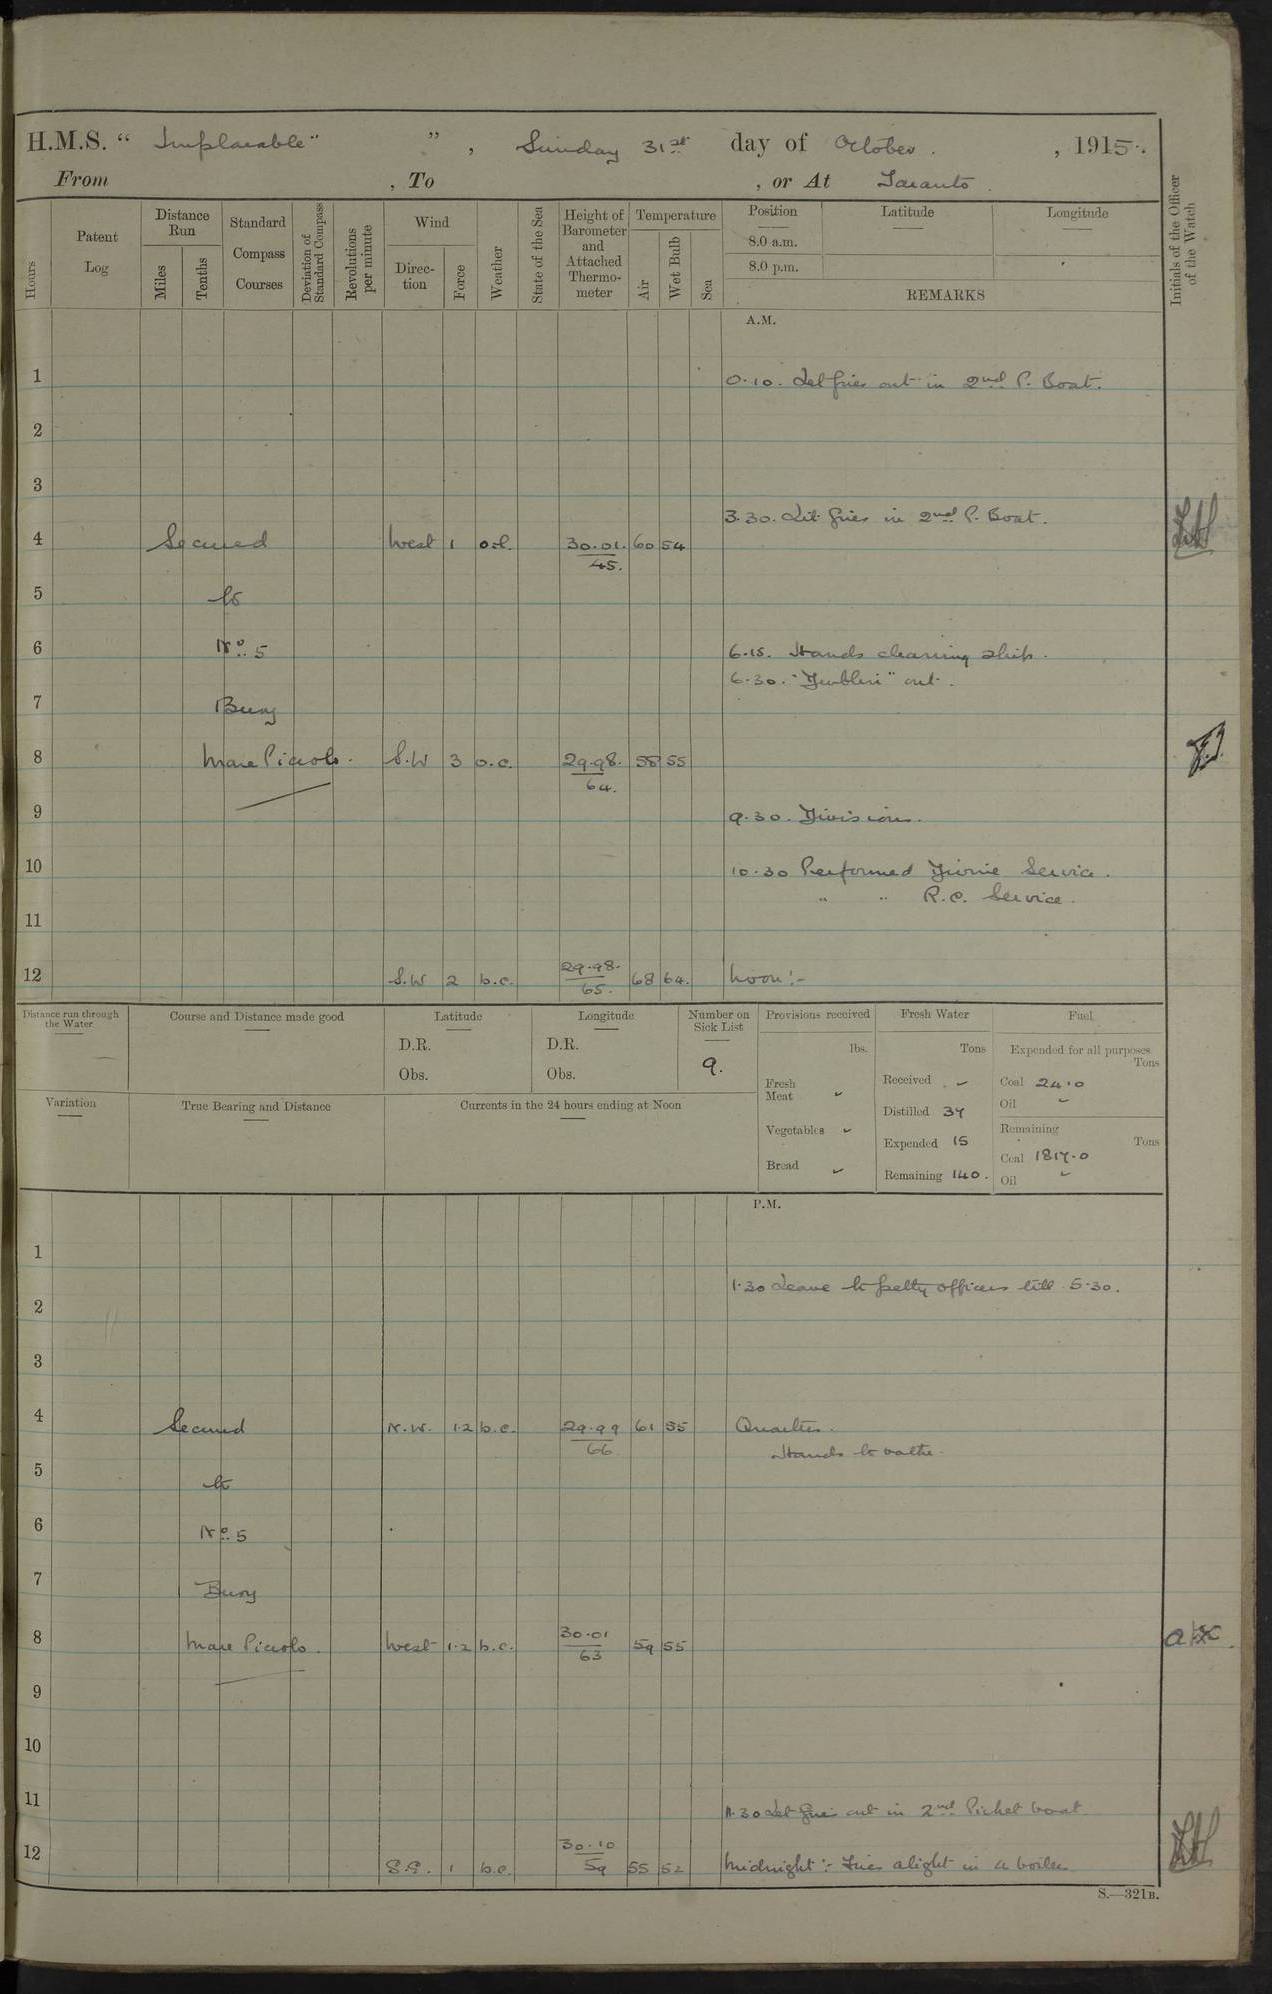 H.M.S. “ Implacable” ”, Sunday 31st day of October. , 1915.
From , To , or At Taranto.
Hours
Patent Log
Distance Run
Miles
Tenths
Standard Compass Courses
Deviation of Standard Compass
Revolutions per minute
Wind
Direction
Force
Weather
State of the Sea
Height of Barometer and Attached Thermometer
Temperature
Air
Wet Bulb
Sea
Position Latitude Longitude
8.0 a.m.
8.0 p.m.
REMARKS
Initials of the Officer of the Watch
A.M.
1 0.10. Let fires out in 2nd P. Boat.
2
3
3.30. Lit fires in 2nd P. Boat.
4 Secured West 1 30.01. 60 54
45.
5 to
6 No. 5 6.15. Hands cleaning ship.
6.30. out.
7 Buoy
8 Mare Piccolo. S.W 3 o.c. 29.98. 58 55
64.
9 9.30. Divisions.
10 10.30 Performed Divine Service.
" " R.C. Service.
11
12 S.W 2 b.c. 29.98. 68 64. Noon:-
65.
Distance run through the Water
Course and Distance made good
Latitude
D.R.
Obs.
Longitude
D.R.
Obs.
Number on Sick List
9.
Provisions received
lbs.
Fresh Meat
Vegetables
Bread
Fresh Water
Tons
Received
Distilled 34
Expended 15
Remaining 140.
Fuel
Expended for all purposes
Tons
Coal 24.0
Oil
Remaining
Tons
Coal 1817.0
Oil
Variation
True Bearing and Distance
Currents in the 24 hours ending at Noon
P.M.
1
1.30 Leave to petty officers till 5.30.
2
3
4 Secured N.W. 1.2 b.c. 29.99 61 55 Quarters.
66
Hands to bathe.
5 to
6 No. 5
7 Buoy
8 Mare Piccolo. West 1.2 b.c. 30.01 59 55
63
9
10
11 11.30 Let fires out in 2nd Picket boat.
12 S.E. 1 b.c. 30.10 55 52 Midnight:- Fires alight in a boiler
59
S.—321B.